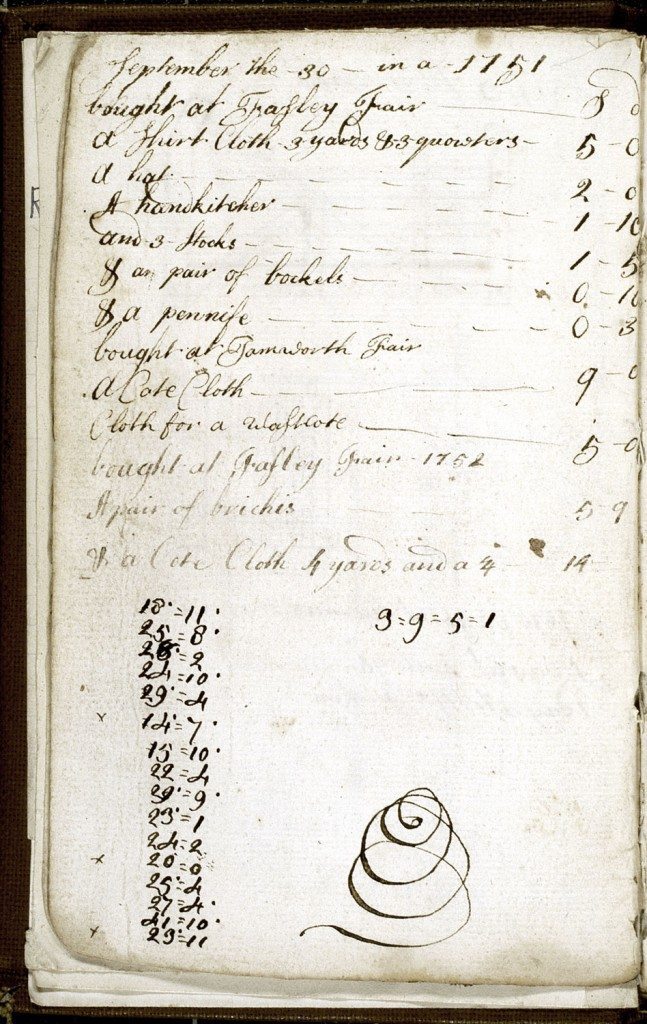 September the 30 - in a - 1751
bought at Fasley Fair — S D
a Shirt Cloth 3 yards & 3 quowters - 5 - 0
a hat - 2 - 0
A handkitcher - 1 - 10
and 3 Stocks - 1 - 5
& an pair of bockels - 0 - 10
& a pennife - 0 - 3
bought at Tamworth Fair
A Cote Cloth - 9 - 0
Cloth for a wastcote - 5 - 0
bought at Fasley Fair - 1752
A pair of brichis 5 9
& a Cote Cloth 4 yards and a 4 - 14
18 = 11
3 = 9 = 5 = 1
25 = 8
= 2
24 = 10
29 = 4
14 = 7
15 = 10
22 = 4
29 = 9
23 = 1
24 = 2
20 = 0
25 = 4
27 = 4
41 = 10
23 = 11